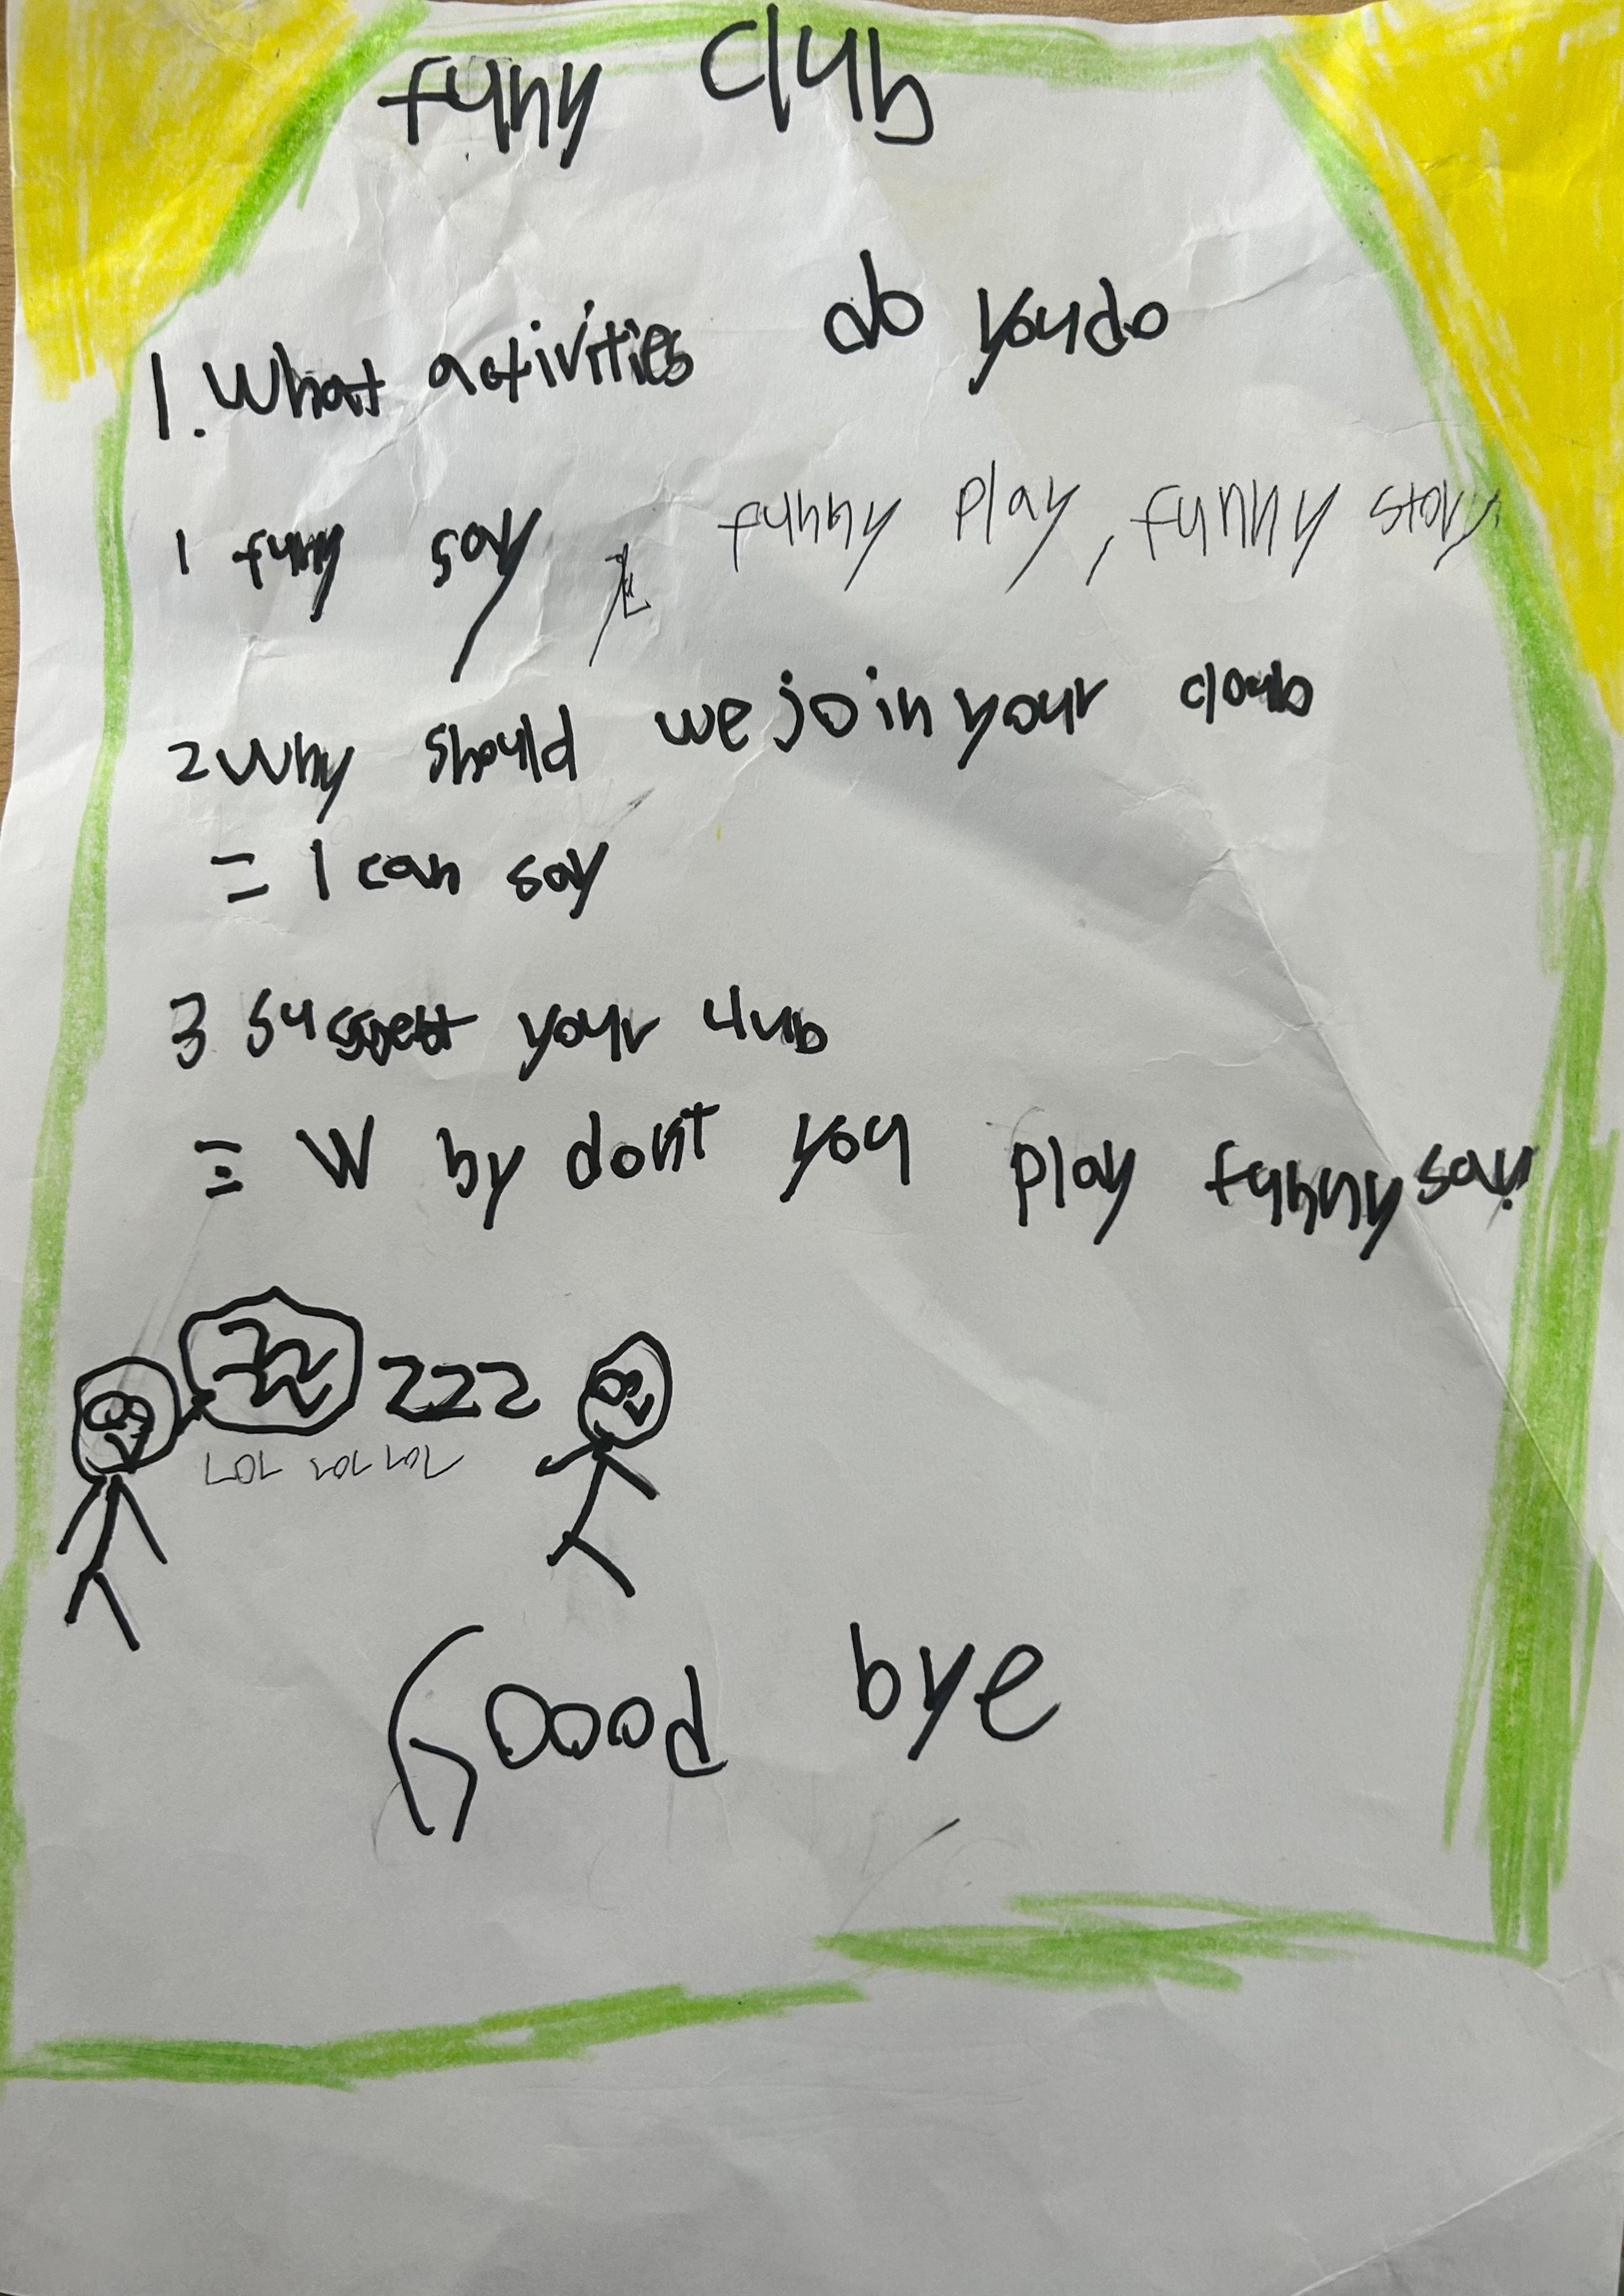 funny club
1. What activities do you do
1 funny say, funny play, funny story
2 Why should we join your cloub
= I can say
3 suggest your club
= Why dont you play funny say.
ㅋㅋ ㅋㅋㅋ
LOL LOL LOL
Goood bye